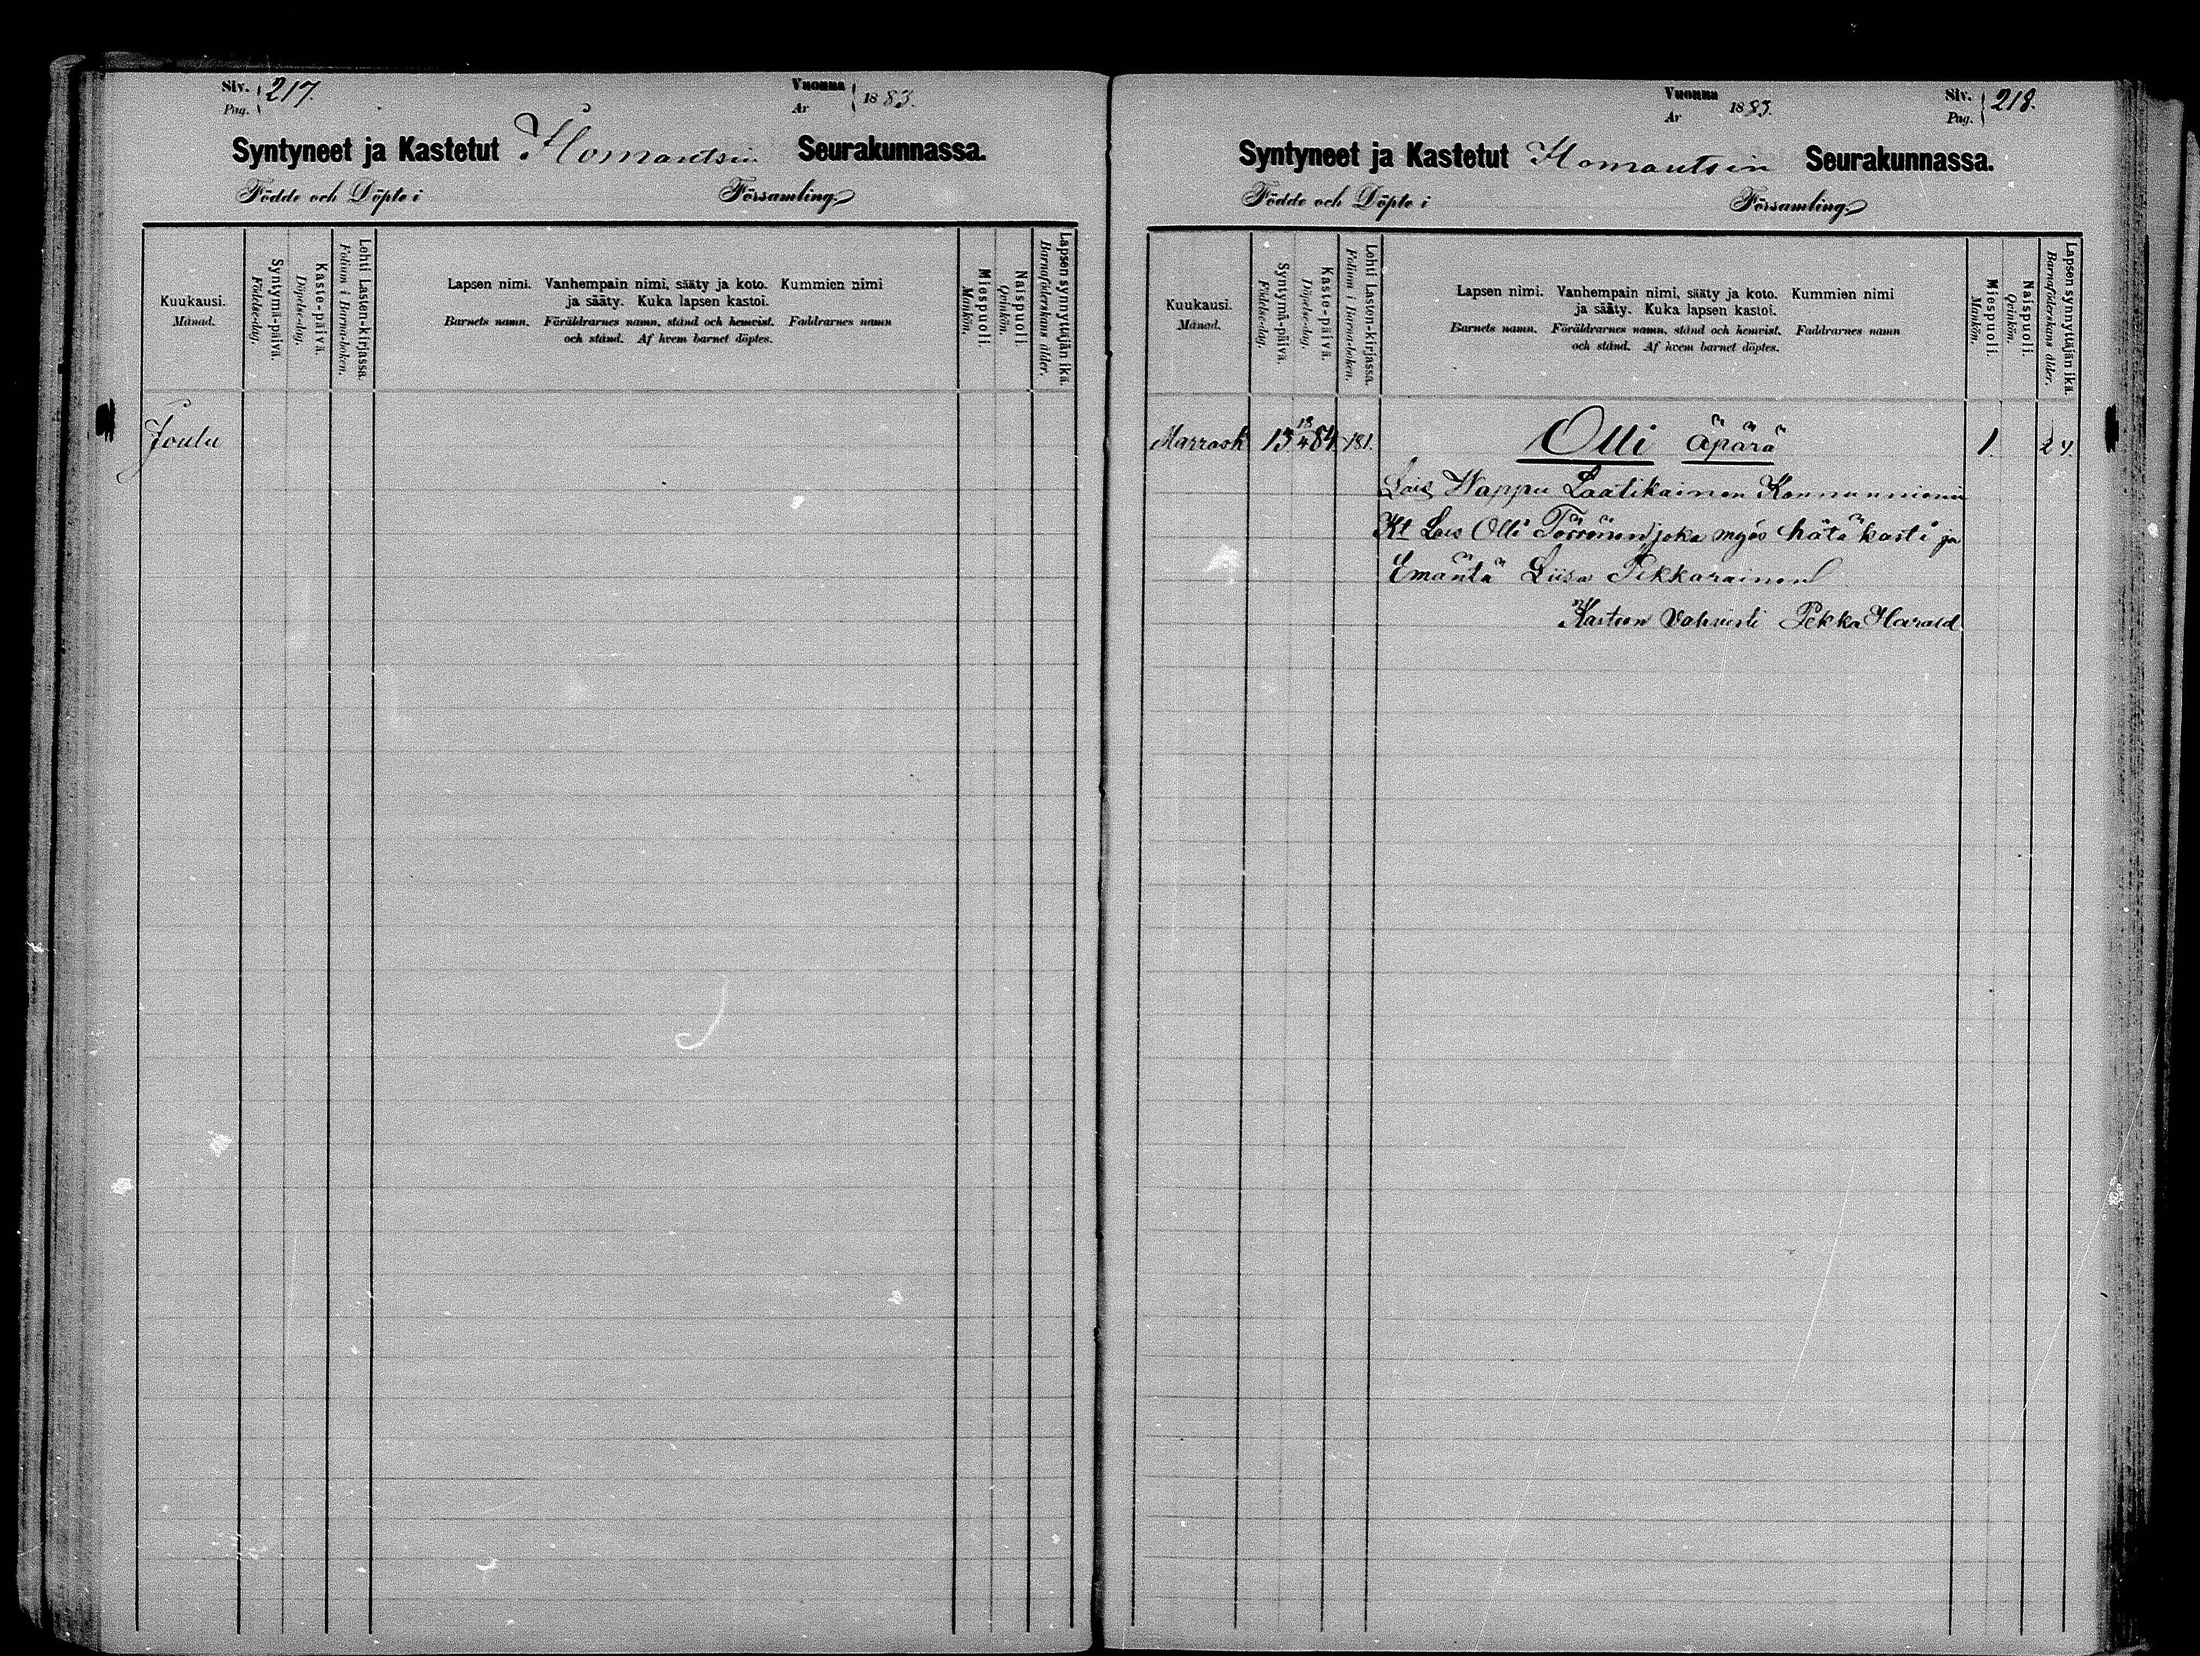 Siv. 217.
Pag.
Vuonna 1883.
År
Syntyneet ja Kastetut Ilomantsin Seurakunnassa.
Födde och Döpte i Församling.
Kuukausi.
Månad.
Syntymä-päivä.
Födelse-dag.
Kaste-päivä.
Döpelse-dag.
Lehti Lasten-kirjassa.
Folium i Barna-boken.
Lapsen nimi. Vanhempain nimi, sääty ja koto. Kummien nimi
ja sääty. Kuka lapsen kastoi.
Barnets namn. Föräldrarnes namn, stånd och hemvist. Faddrarnes namn
och stånd. Af hvem barnet döptes.
Miespuoli.
Mankön.
Naispuoli
Qvinkön.
Lapsen synnyttäjän ikä.
Barnaföderskans ålder.
Joulu
Vuonna 1883.
År
Siv. 218.
Pag.
Syntyneet ja Kastetut Ilomantsin Seurakunnassa.
Födde och Döpte i Församling.
Kuukausi.
Månad.
Syntymä-päivä
Födelse-dag.
Kaste-päivä.
Döpelse-dag.
Lehti Lasten-kirjassa.
Folium i Barna-boken.
Lapsen nimi. Vanhempain nimi, sääty ja koto. Kummien nimi
ja sääty. Kuka lapsen kastoi.
Barnets namn. Föräldrarnes namn, stånd och hemvist. Faddrarnes namn
och stånd. Af hvem barnet döptes.
Miespuoli.
Mankön.
Naispuoli.
Qvinkön.
Lapsen synnyttäjän ikä.
Barnaföderskans ålder.
Marrask 13 18/4 84. 181. Olli äpärä 1. 24.
Lois Wappu Laatikainen Konnunniemi
Kt Lois Olli Törrönen joka myös hätä kasti ja
Emäntä Liisa Pekkarainen
Kasteen vahvisti Pekka Harald